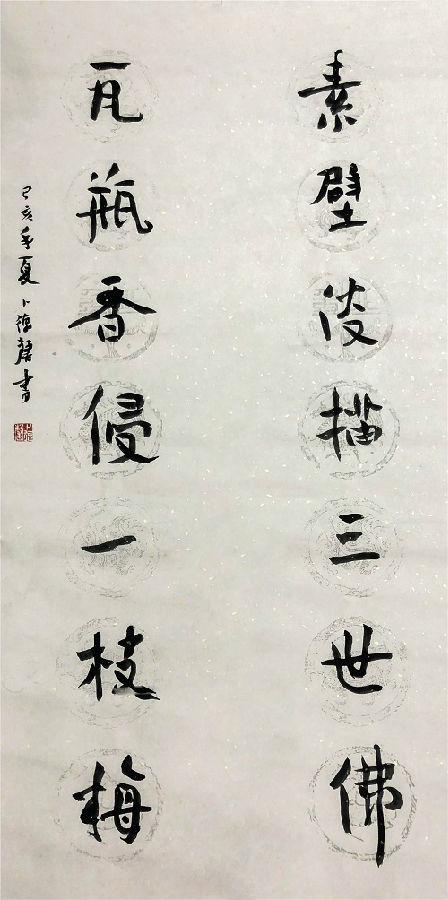 素壁淡描三世佛
瓦瓶香侵一枝梅
己亥年夏卜德馨书